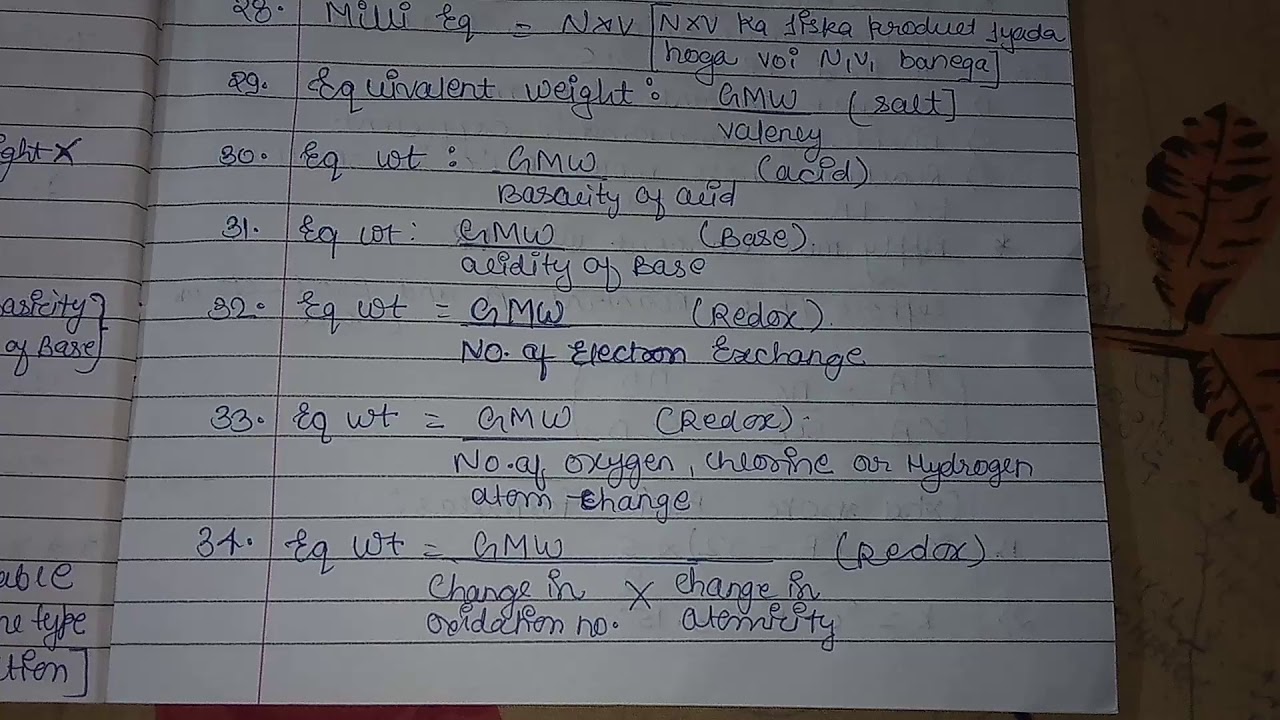 28. Milli Eq = N×V [N×V ka jiska product jyada
hoga voi N₁V₁ banega]
29. Equivalent weight: GMW (salt]
valency
ght×
30. Eq wt: GMW (acid)
Basacity of acid
31. Eq wt: GMW (Base).
acidity of Base
asicity]
of Base]
32. Eq wt = GMW (Redox).
No. of Electron Exchange
33. Eq wt = GMW (Redox).
No. of oxygen, chlorine or Hydrogen
atom change
34. Eq wt = GMW (Redox).
Change in × change in
oxidation no. atomicity
able
ne type
ction]